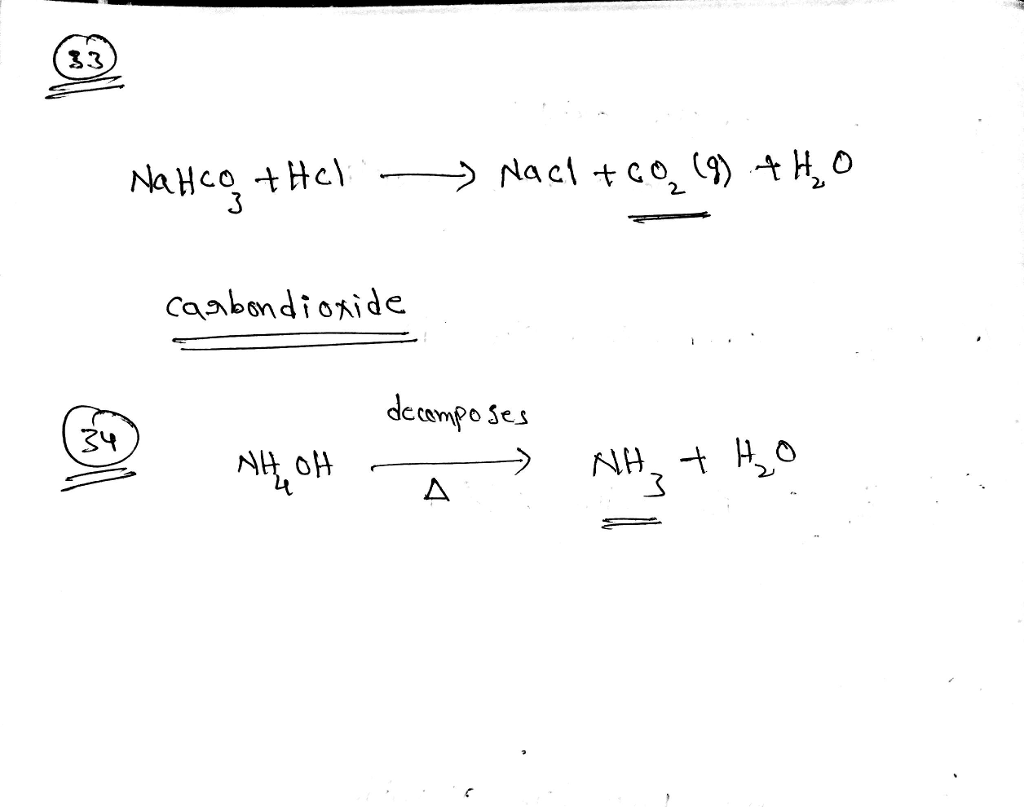 33
NaHCO₃ + HCl → NaCl + CO₂ (g) + H₂O
carbondioxide
34
decomposes
NH₄OH → NH₃ + H₂O
Δ